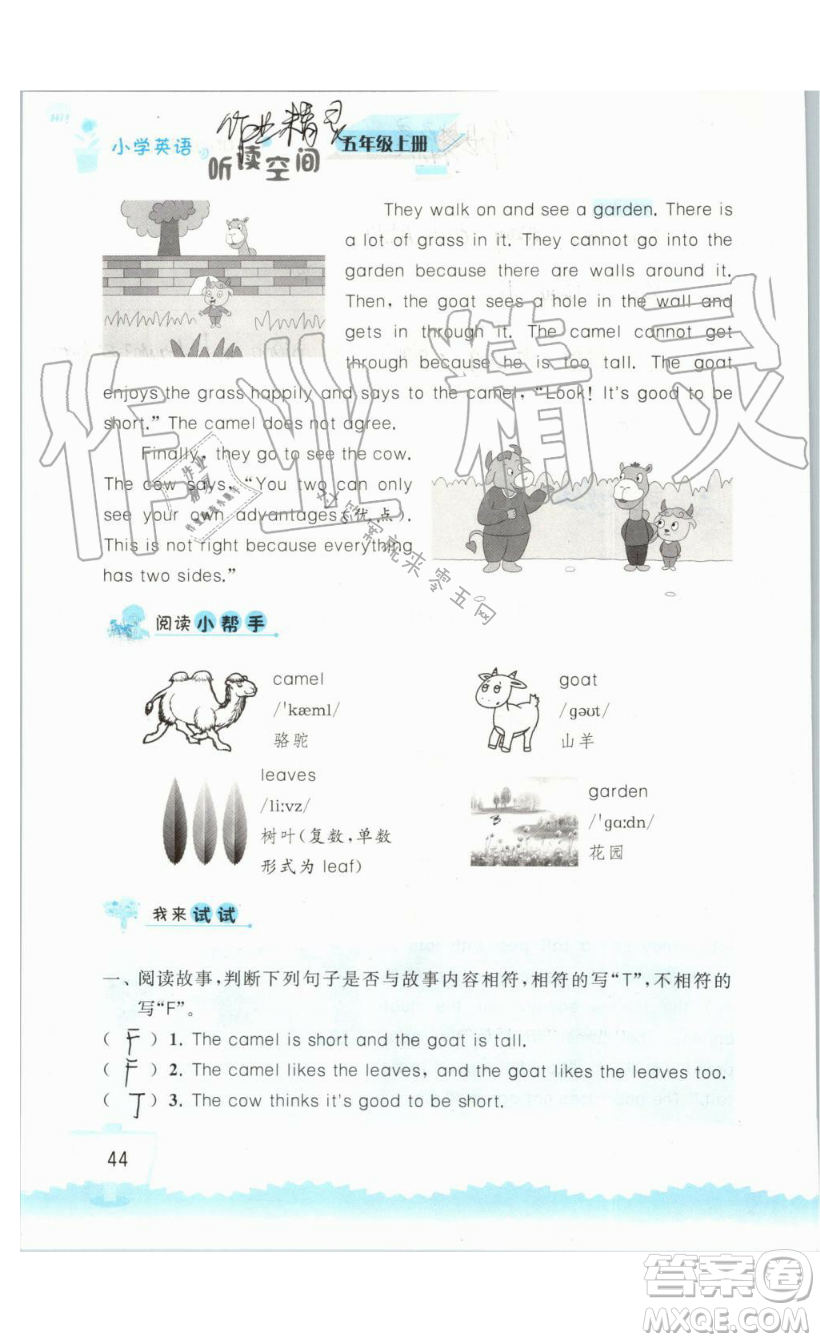 小学英语
作业精灵
听读空间
五年级上册
They walk on and see a garden. There is
a lot of grass in it. They cannot go into the
garden because there are walls around it.
Then, the goat sees a hole in the wall and
gets in through it. The camel cannot get
through because he is too tall. The goat
enjoys the grass happily and says to the camel, “Look! It's good to be
short.” The camel does not agree.
Finally, they go to see the cow.
The cow says, “You two can only
see your own advantages(优点).
This is not right because everything
has two sides.”
作业精灵
对答案就来零五网
阅读小帮手
camel
/ˈkæml/
骆驼
goat
/ɡəʊt/
山羊
leaves
/liːvz/
树叶(复数,单数
形式为 leaf)
garden
/ˈɡɑːdn/
花园
我来试试
一、阅读故事,判断下列句子是否与故事内容相符,相符的写“T”,不相符的
写“F”。
( F ) 1. The camel is short and the goat is tall.
( F ) 2. The camel likes the leaves, and the goat likes the leaves too.
( T ) 3. The cow thinks it's good to be short.
44
答案圈
MXQE.COM